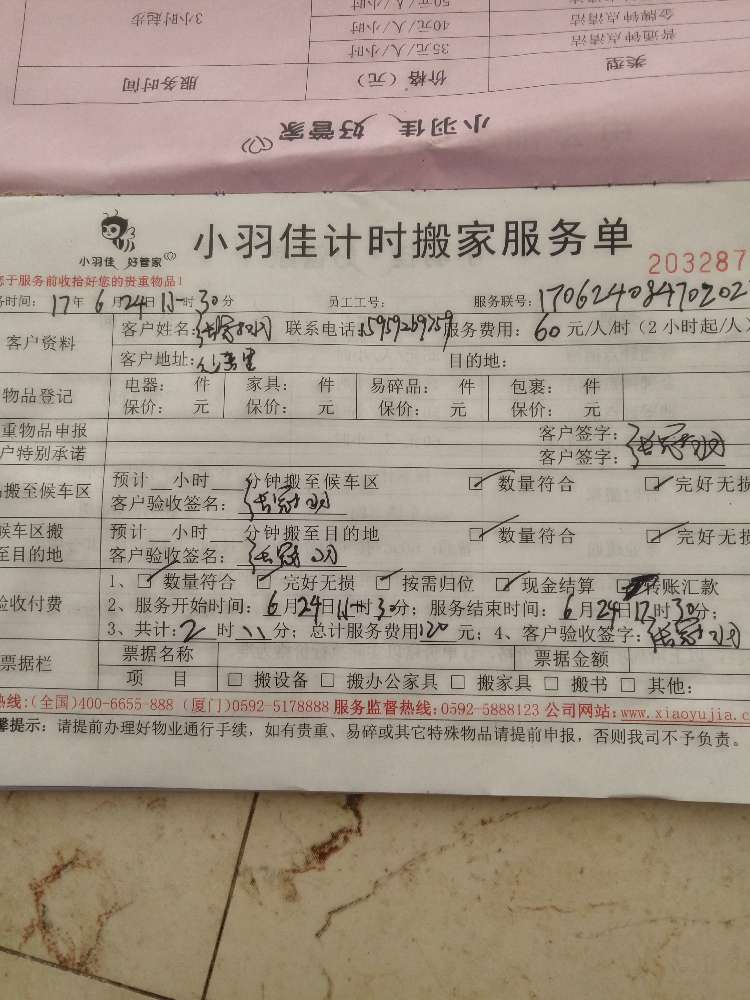 50元/人/小时
金牌钟点清洁 40元/人/小时 3小时起步
普通钟点清洁 35元/人/小时
类型 价格（元） 服务时间
小羽佳 好管家
小羽佳 好管家
小羽佳计时搬家服务单
203287
您于服务前收拾好您的贵重物品！
务时间： 17年 6月24日11时30分 员工工号： 服务联号：
客户资料 客户姓名： 联系电话： 服务费用：60元/人/时（2小时起/人）
客户地址： 目的地：
物品登记 电器： 件 家具： 件 易碎品： 件 包裹： 件
保价： 元 保价： 元 保价： 元 保价： 元
重物品申报 客户签字：
户特别承诺 客户签字：
搬至候车区 预计__小时__分钟搬至候车区 ☑数量符合 ☑完好无损
客户验收签名：
候车区搬 预计__小时__分钟搬至目的地 ☑数量符合 ☑完好无损
至目的地 客户验收签名：
验收付费 1、☑数量符合 ☑完好无损 ☑按需归位 ☑现金结算 转账汇款
2、服务开始时间：6月24日11时30分；服务结束时间：6月24日 时30分；
3、共计：2时 分；总计服务费用120元；4、客户验收签字：
票据栏 票据名称 票据金额
项 目 □搬设备 □搬办公家具 □搬家具 □搬书 □其他：
热线：(全国)400-6655-888 (厦门)0592-5178888 服务监督热线：0592-5888123 公司网站：www.xiaoyujia.c
馨提示：请提前办理好物业通行手续，如有贵重、易碎或其它特殊物品请提前申报，否则我司不予负责。